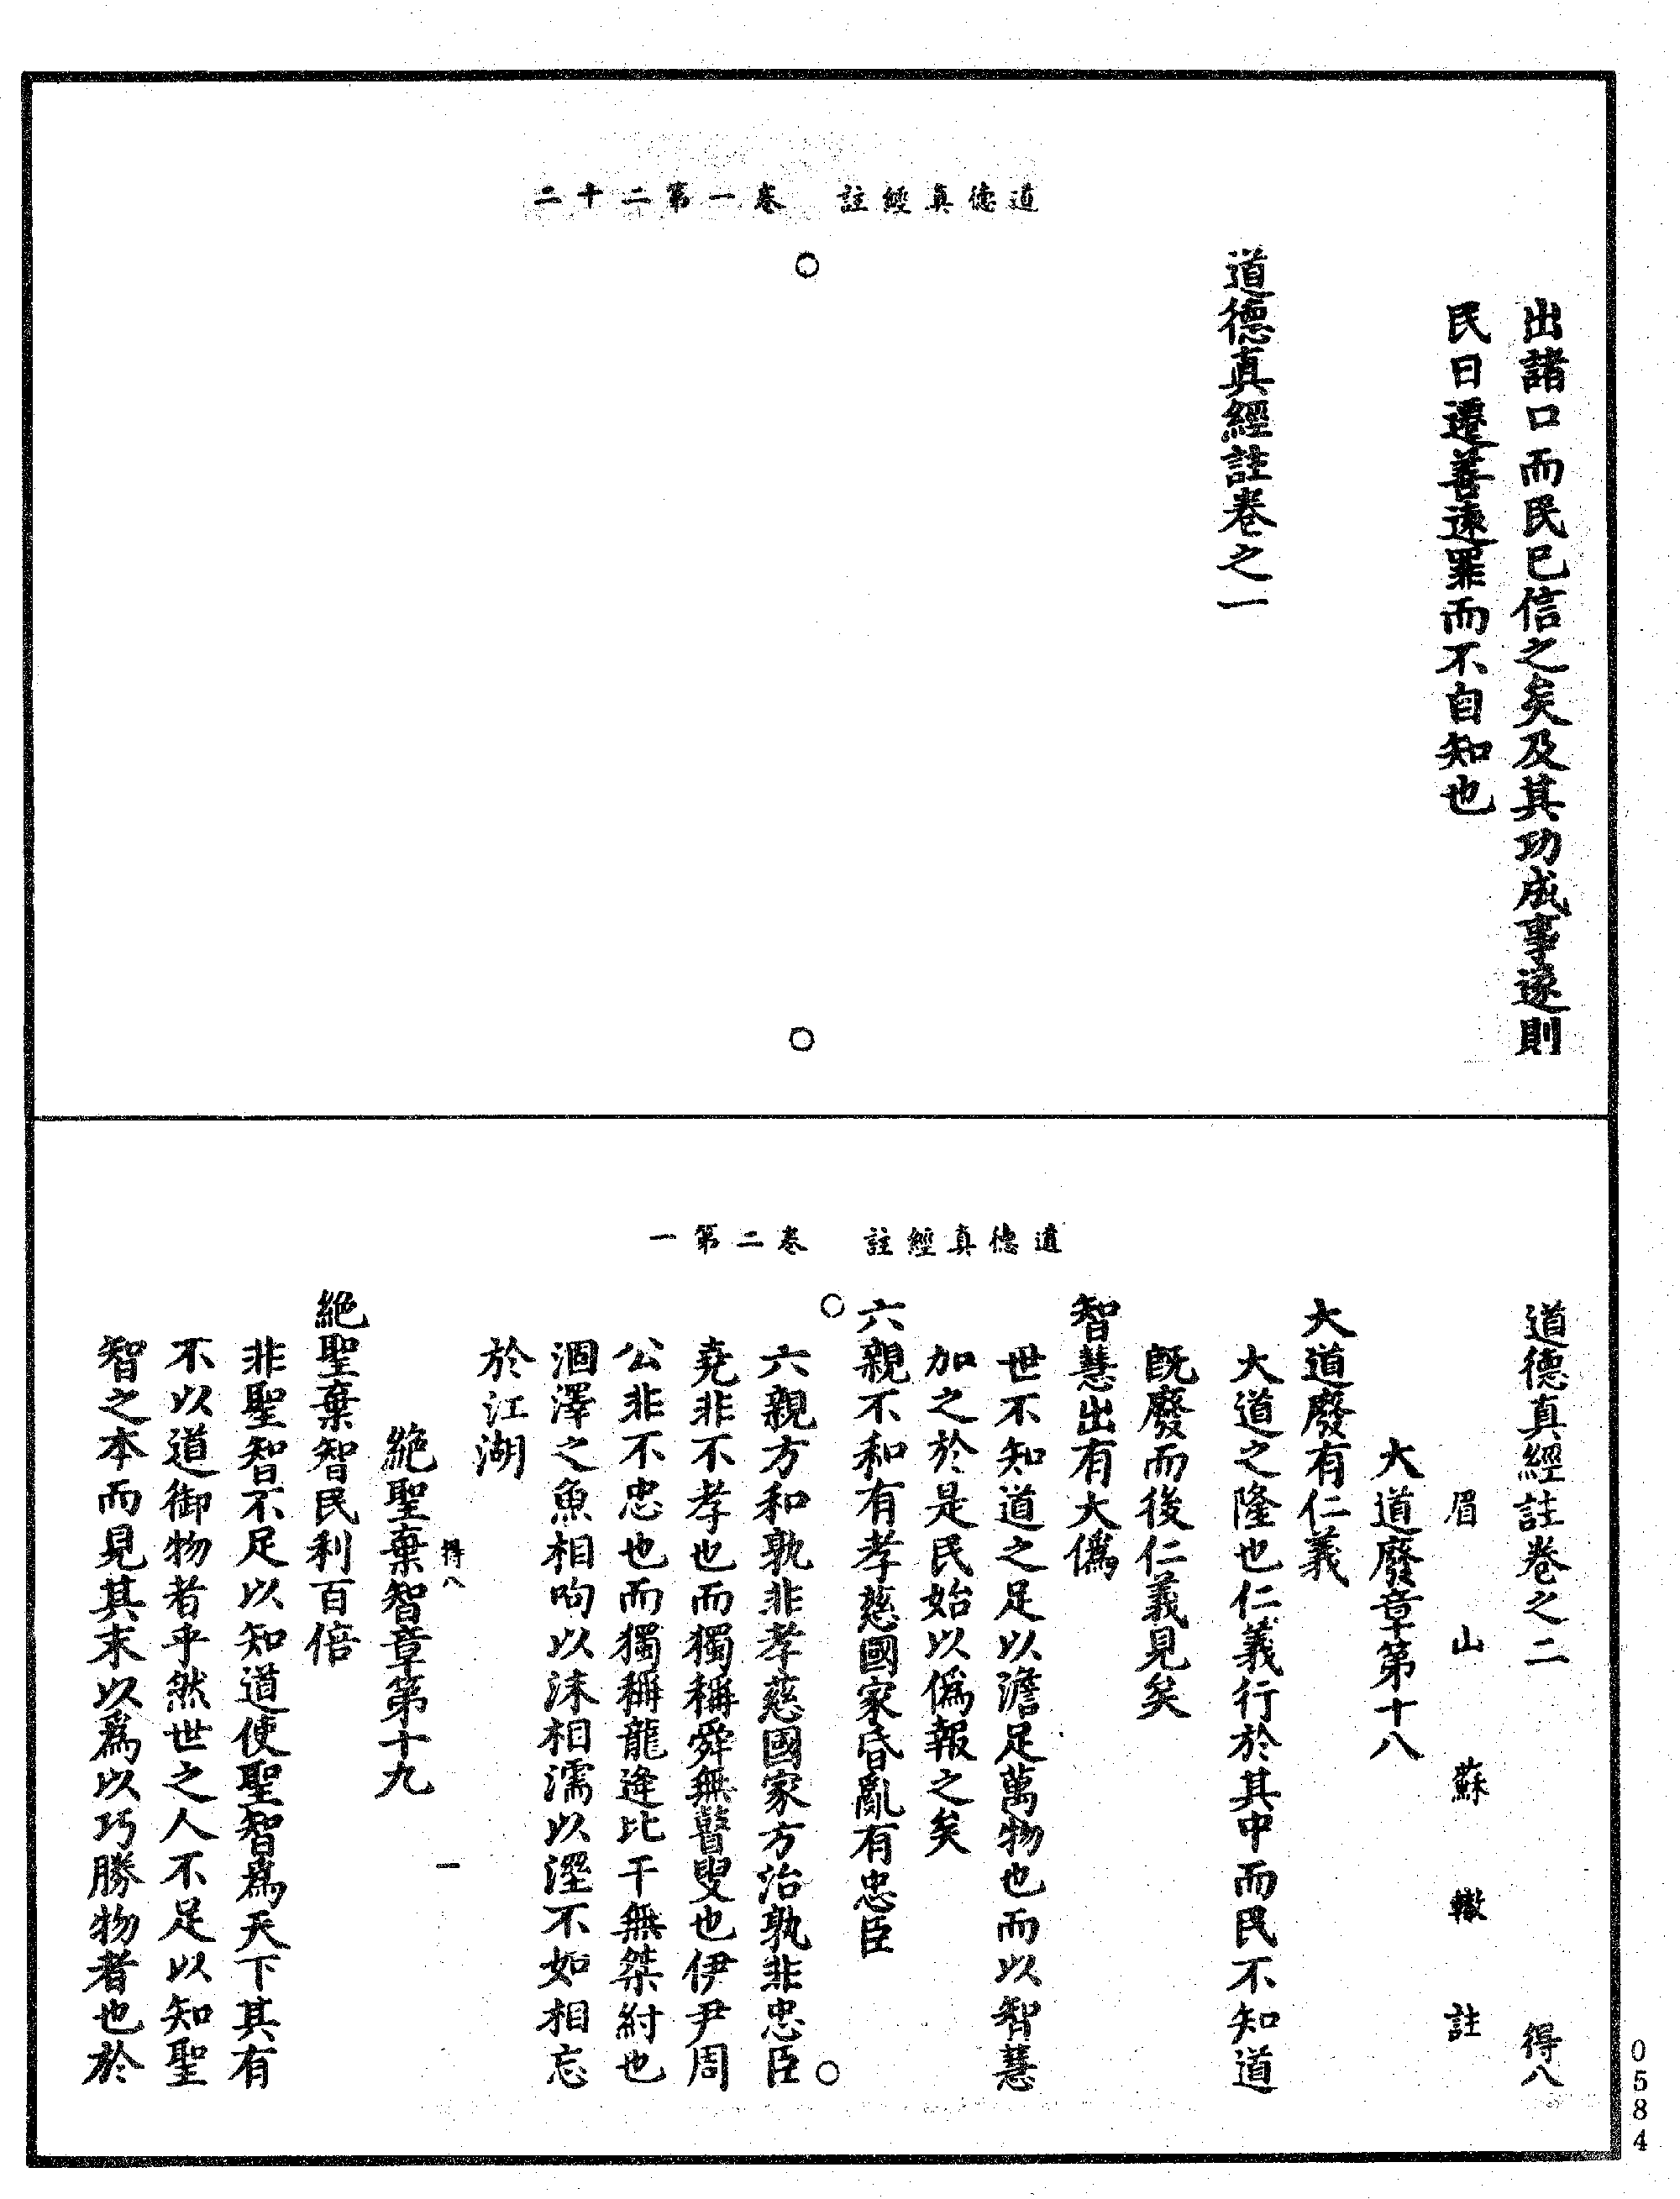 道德真經註　卷一第二十二
出諸口而民已信之矣及其功成事遂則
民日遷善遠罪而不自知也
道德真經註卷之一
道德真經註　卷二第一
道德真經註卷之二　得八
眉山蘇轍註
大道廢章第十八
大道廢有仁義
大道之隆也仁義行於其中而民不知道
既廢而後仁義見矣
智慧出有大偽
世不知道之足以澹足萬物也而以智慧
加之於是民始以偽報之矣
六親不和有孝慈國家昏亂有忠臣
六親方和孰非孝慈國家方治孰非忠臣
堯非不孝也而獨稱舜無瞽叟也伊尹周
公非不忠也而獨稱龍逄比干無桀紂也
涸澤之魚相呴以沫相濡以溼不如相忘
於江湖
得八　一
絕聖棄智章第十九
絕聖棄智民利百倍
非聖智不足以知道使聖智爲天下其有
不以道御物者乎然世之人不足以知聖
智之本而見其末以爲以巧勝物者也於
0584